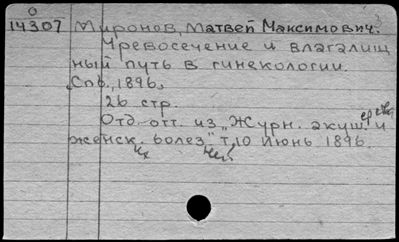 0
14307 Миронов, Матвей Максимович.
Чревосечение и влагалищ
ный путь в гинекологии.
Спб., 1896,
26 стр.
Отд. отт. из „Журн. акуш. и
женск. болез" т.10 Июнь 1896.